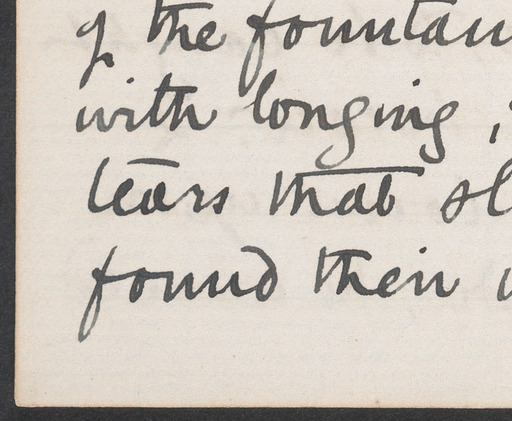 of the fountain
with longing,
tears that sl
found their w